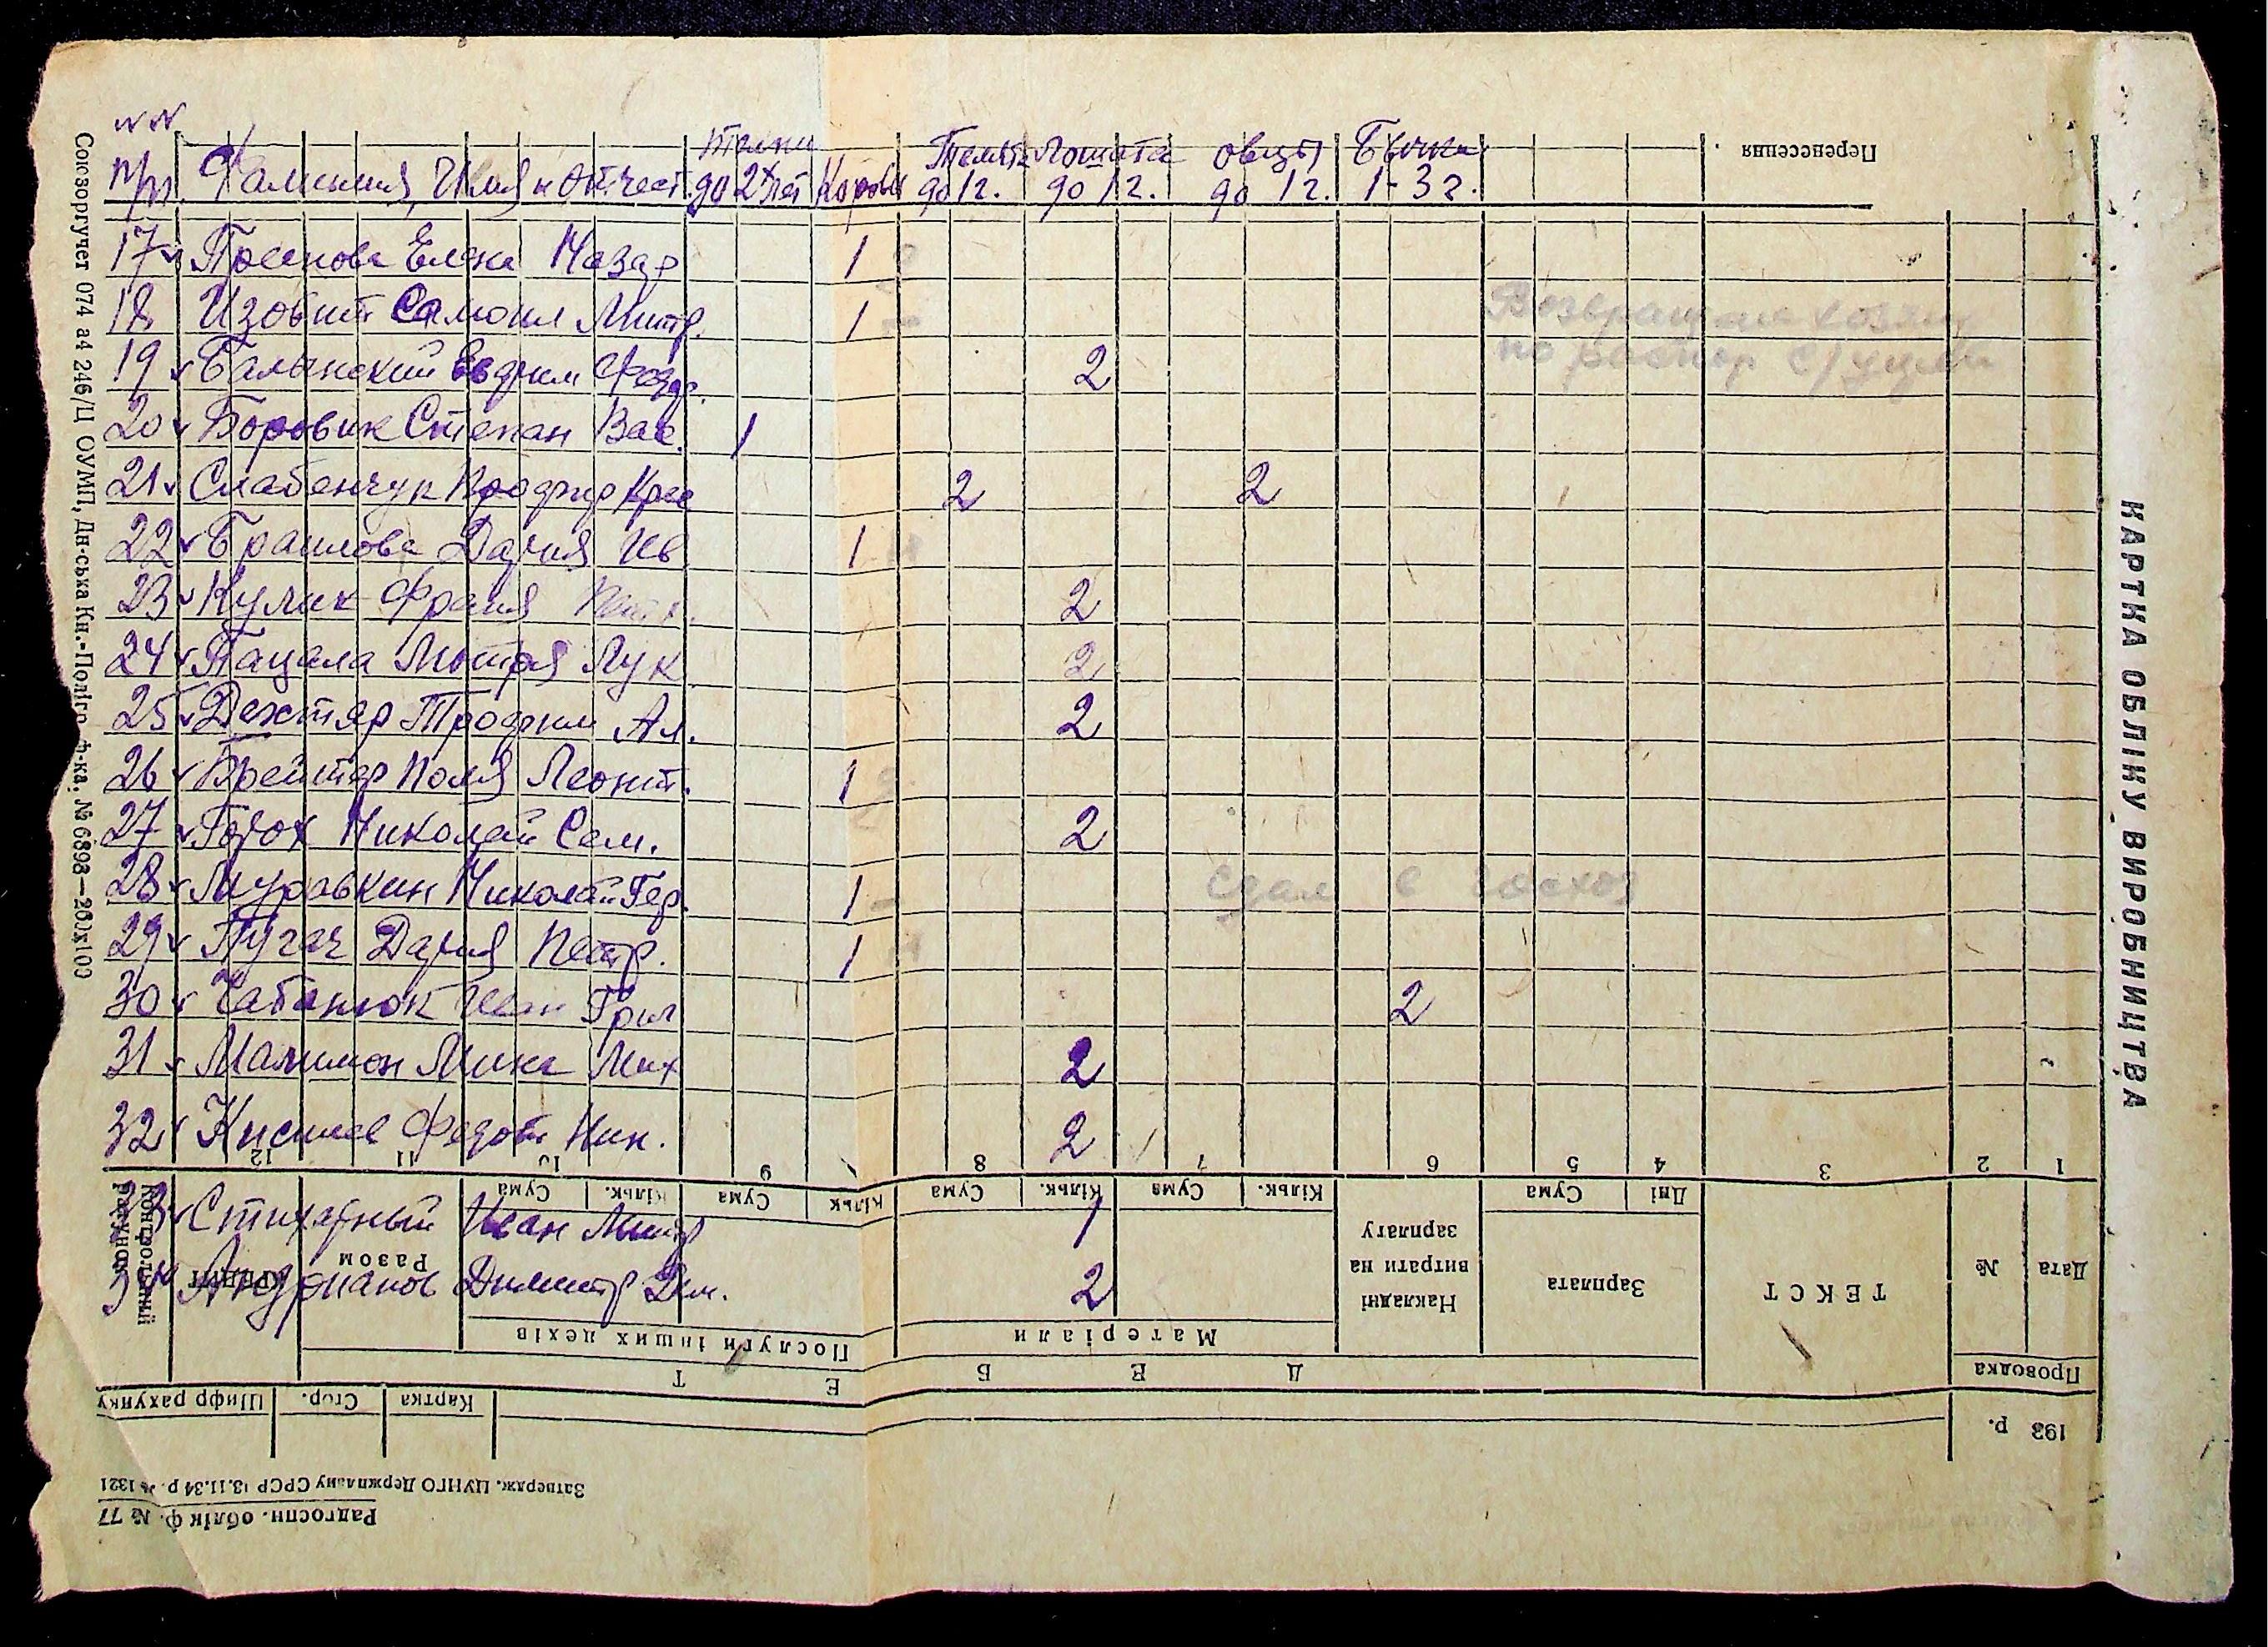 №№ п/п. Фамилия, Имя и Отчест. телки до 2х лет Коровы Телята до 1 г. Лошата до 1 г. овцы до 1 г. Бычки 1-3 г.
Перенесення
17 Елена Назар 1
18 Изовит Самоил Митр. 1
Возвращена
19 Балынский Федор. 2
по распор
20 Боровик Степан Вас. 1
21 Слабенчук 2 2
22 Браилова Дария Ив 1
23 Кулик 2
24 Пацала Мотря Лук 2
25 Дехтяр Трофим Ал. 2
26 Поля Леонт. 1
27 Горох Николай Сем. 2
28 Муравкин Николай Гер. 1
Сдал в совхоз
29 Пугач Дария Петр. 1
30 Чабанюк Иван Григ 2
31 Малимон Мина Мих 2
32 Федот Ник. 2
12 11 10 9 8 7 6 5 4 3 2 1
33 Стихарный Иван Митр 1
34 Андрианов Димитр Дем. 2
Контрольний рахунок
КРЕДИТ
Разом
Сума Кільк. Сума Кільк Сума Кільк. Сума Кільк.
Накладні витрати на зарплату
Сума Дні
Зарплата
ТЕКСТ
№ Дата
Послуги інших цехів
Матеріали
ДЕБЕТ
Проводка
Шифр рахунку Стор. Картка
193 р.
Затвердж. ЦУНГО Держплану СРСР 13.11.34 р. № 1321
Радгоспн. облік ф. № 77
КАРТКА ОБЛІКУ ВИРОБНИЦТВА
Союзоргучет 074 а4 246/Ц ОУМП, Дн-ська Кн.-Поліго ф-ка. № 6898—200х100